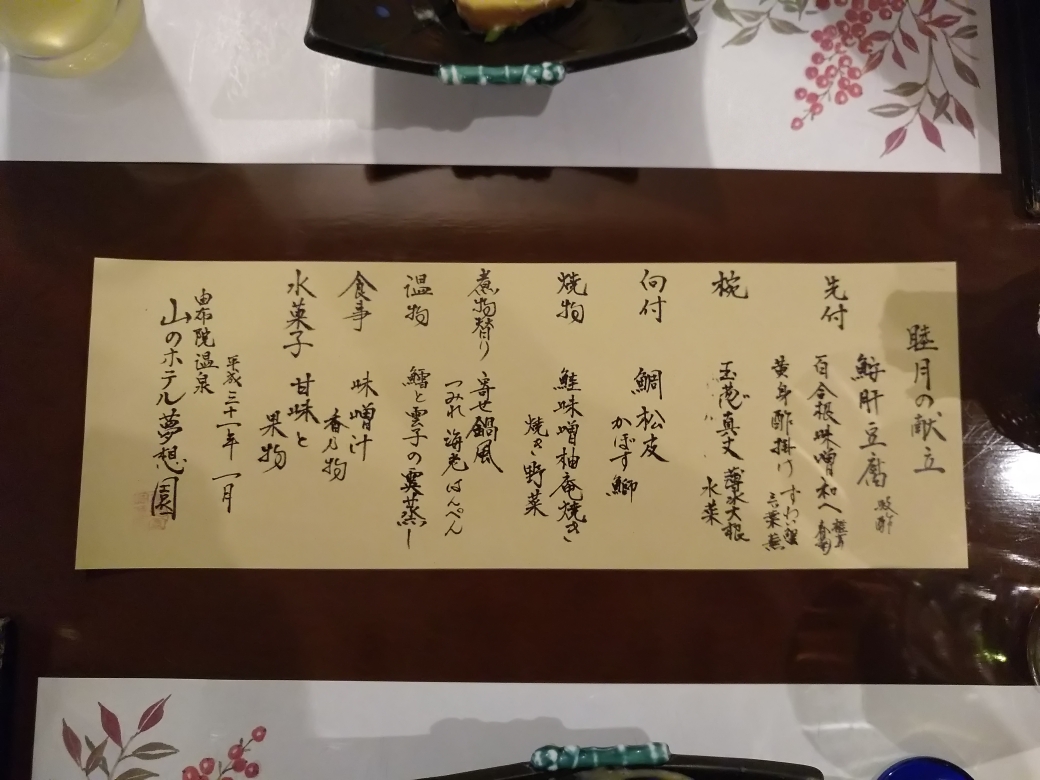 睦月の献立
先付
鮟肝豆腐
百合根味噌和へ
黄身酢掛け
すわい蟹
椀
真丈
薄氷大根
水菜
向付
鯛松皮
かぼす鰤
焼物
鮭味噌柚庵焼き
焼き野菜
煮物替り
寄せ鍋風
つみれ 海老 はんぺん
温物
鱈と雲子の霙蒸し
食事
味噌汁
香の物
水菓子
甘味と
果物
平成三十一年 一月
由布院温泉
山のホテル夢想園